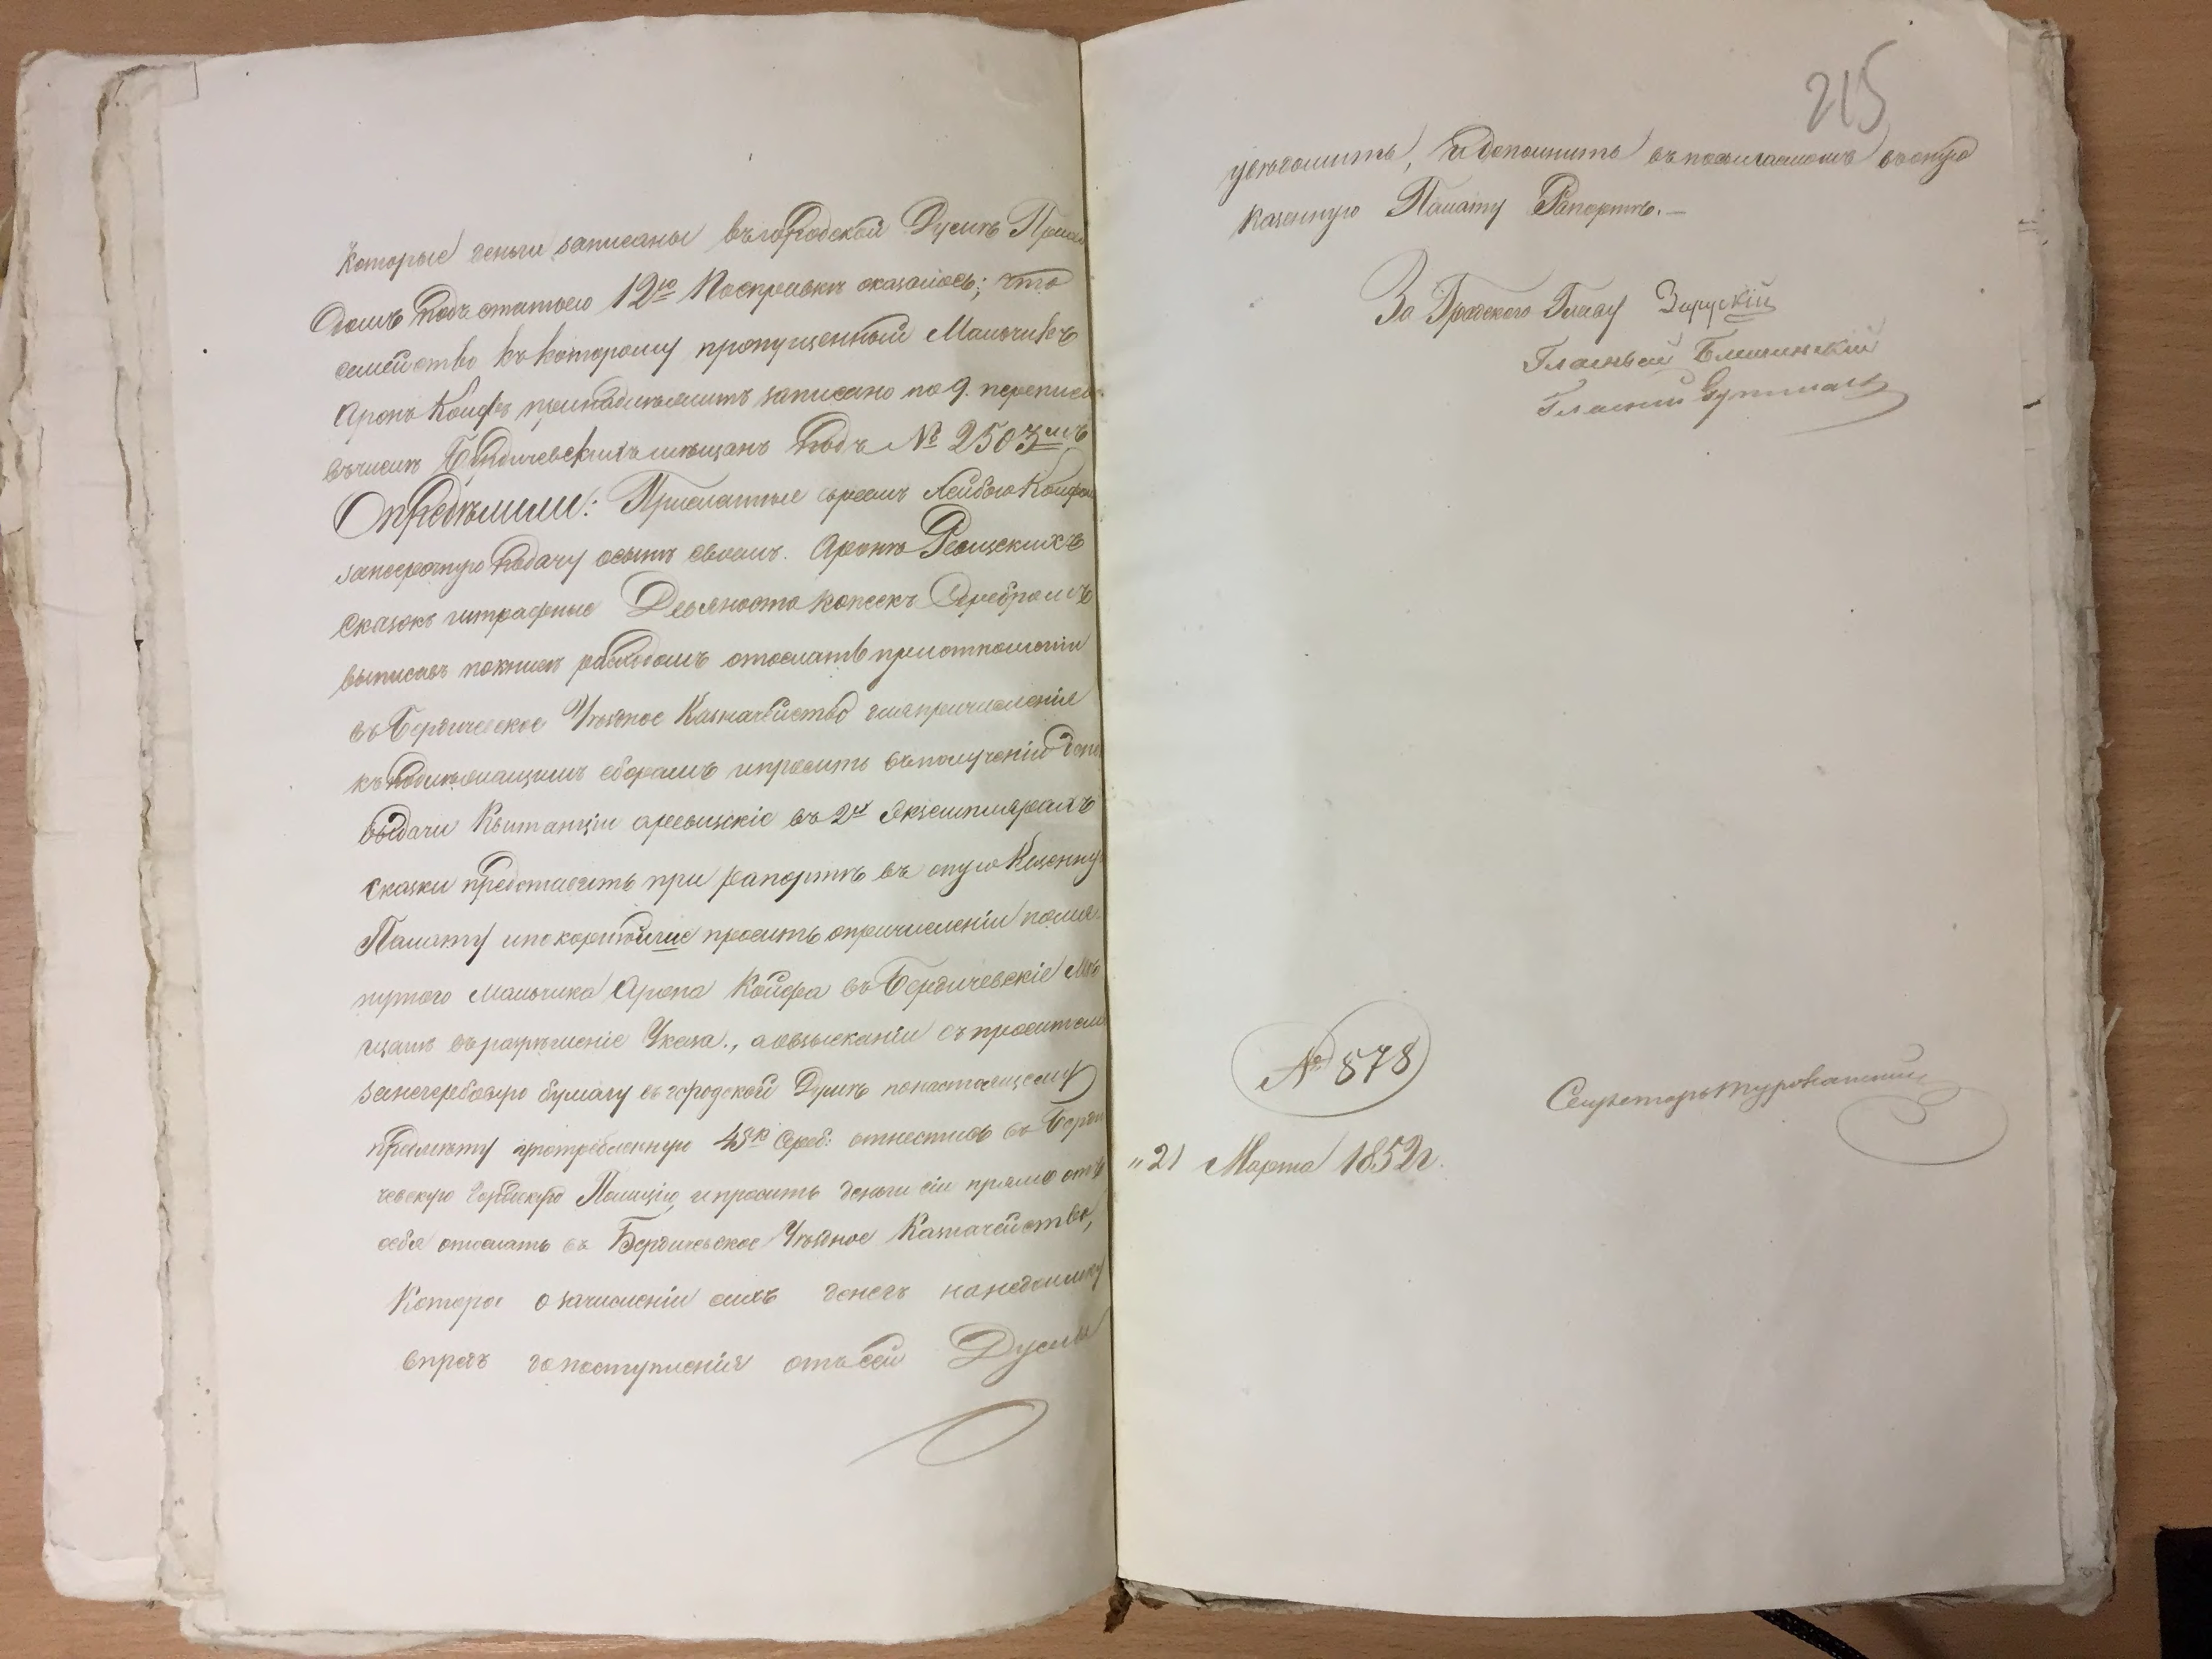 которые деньги записаны въ городской Думѣ При
домъ подъ статьею 12ю По справкѣ оказалось; что
семейство къ которому пропущенный Мальчикъ
Аронъ Койфъ принадлежитъ записано по 9. переписи
въ числѣ Бердичевскихъ мѣщанъ подъ № 2503мъ
Опредѣлили: Присланные Лейбою Койфом
за несрочную подачу о сынѣ своемъ Аронѣ Ревизскихъ
сказокъ штрафные Девяносто копеекъ Серебромъ
выписавъ по книгѣ расходомъ отослать при отношеніи
въ Бердичевское Уѣздное Казначейство для причисленія
къ подлежащимъ сборамъ и просить въ полученіи денегъ
выдачи Квитанціи а ревизскіе въ 2хъ Экземплярахъ
сказки представить при рапортѣ въ оную Казенную
Палату и покорнѣйше просить о причисленіи помя-
нутого мальчика Арона Койфа въ Бердичевскіе Мѣ
щане въ разрѣшеніе Указа., а о взысканіи съ просителя
за негербовую бумагу въ городской Думѣ по настоящему
предмету употребленную 45 к Сереб: отнестись въ Берди
чевскую Городскую Полицію, и просить деньги сіи прямо отъ
себя отослать въ Бердичевское Уѣздное Казначейство,
Которое о зачисленіи сихъ денегъ на недоимку
впредь до поступленія отъ сей Думы
215
увѣдомить, и дополнить въ посылаемомъ въ оную
Казенную Палату Рапортѣ.—
За Градского Главу Заруский
Гласный Блешинский
Гласный
№ 878
Секретарь Туровский
"21 Марта 1852 г.